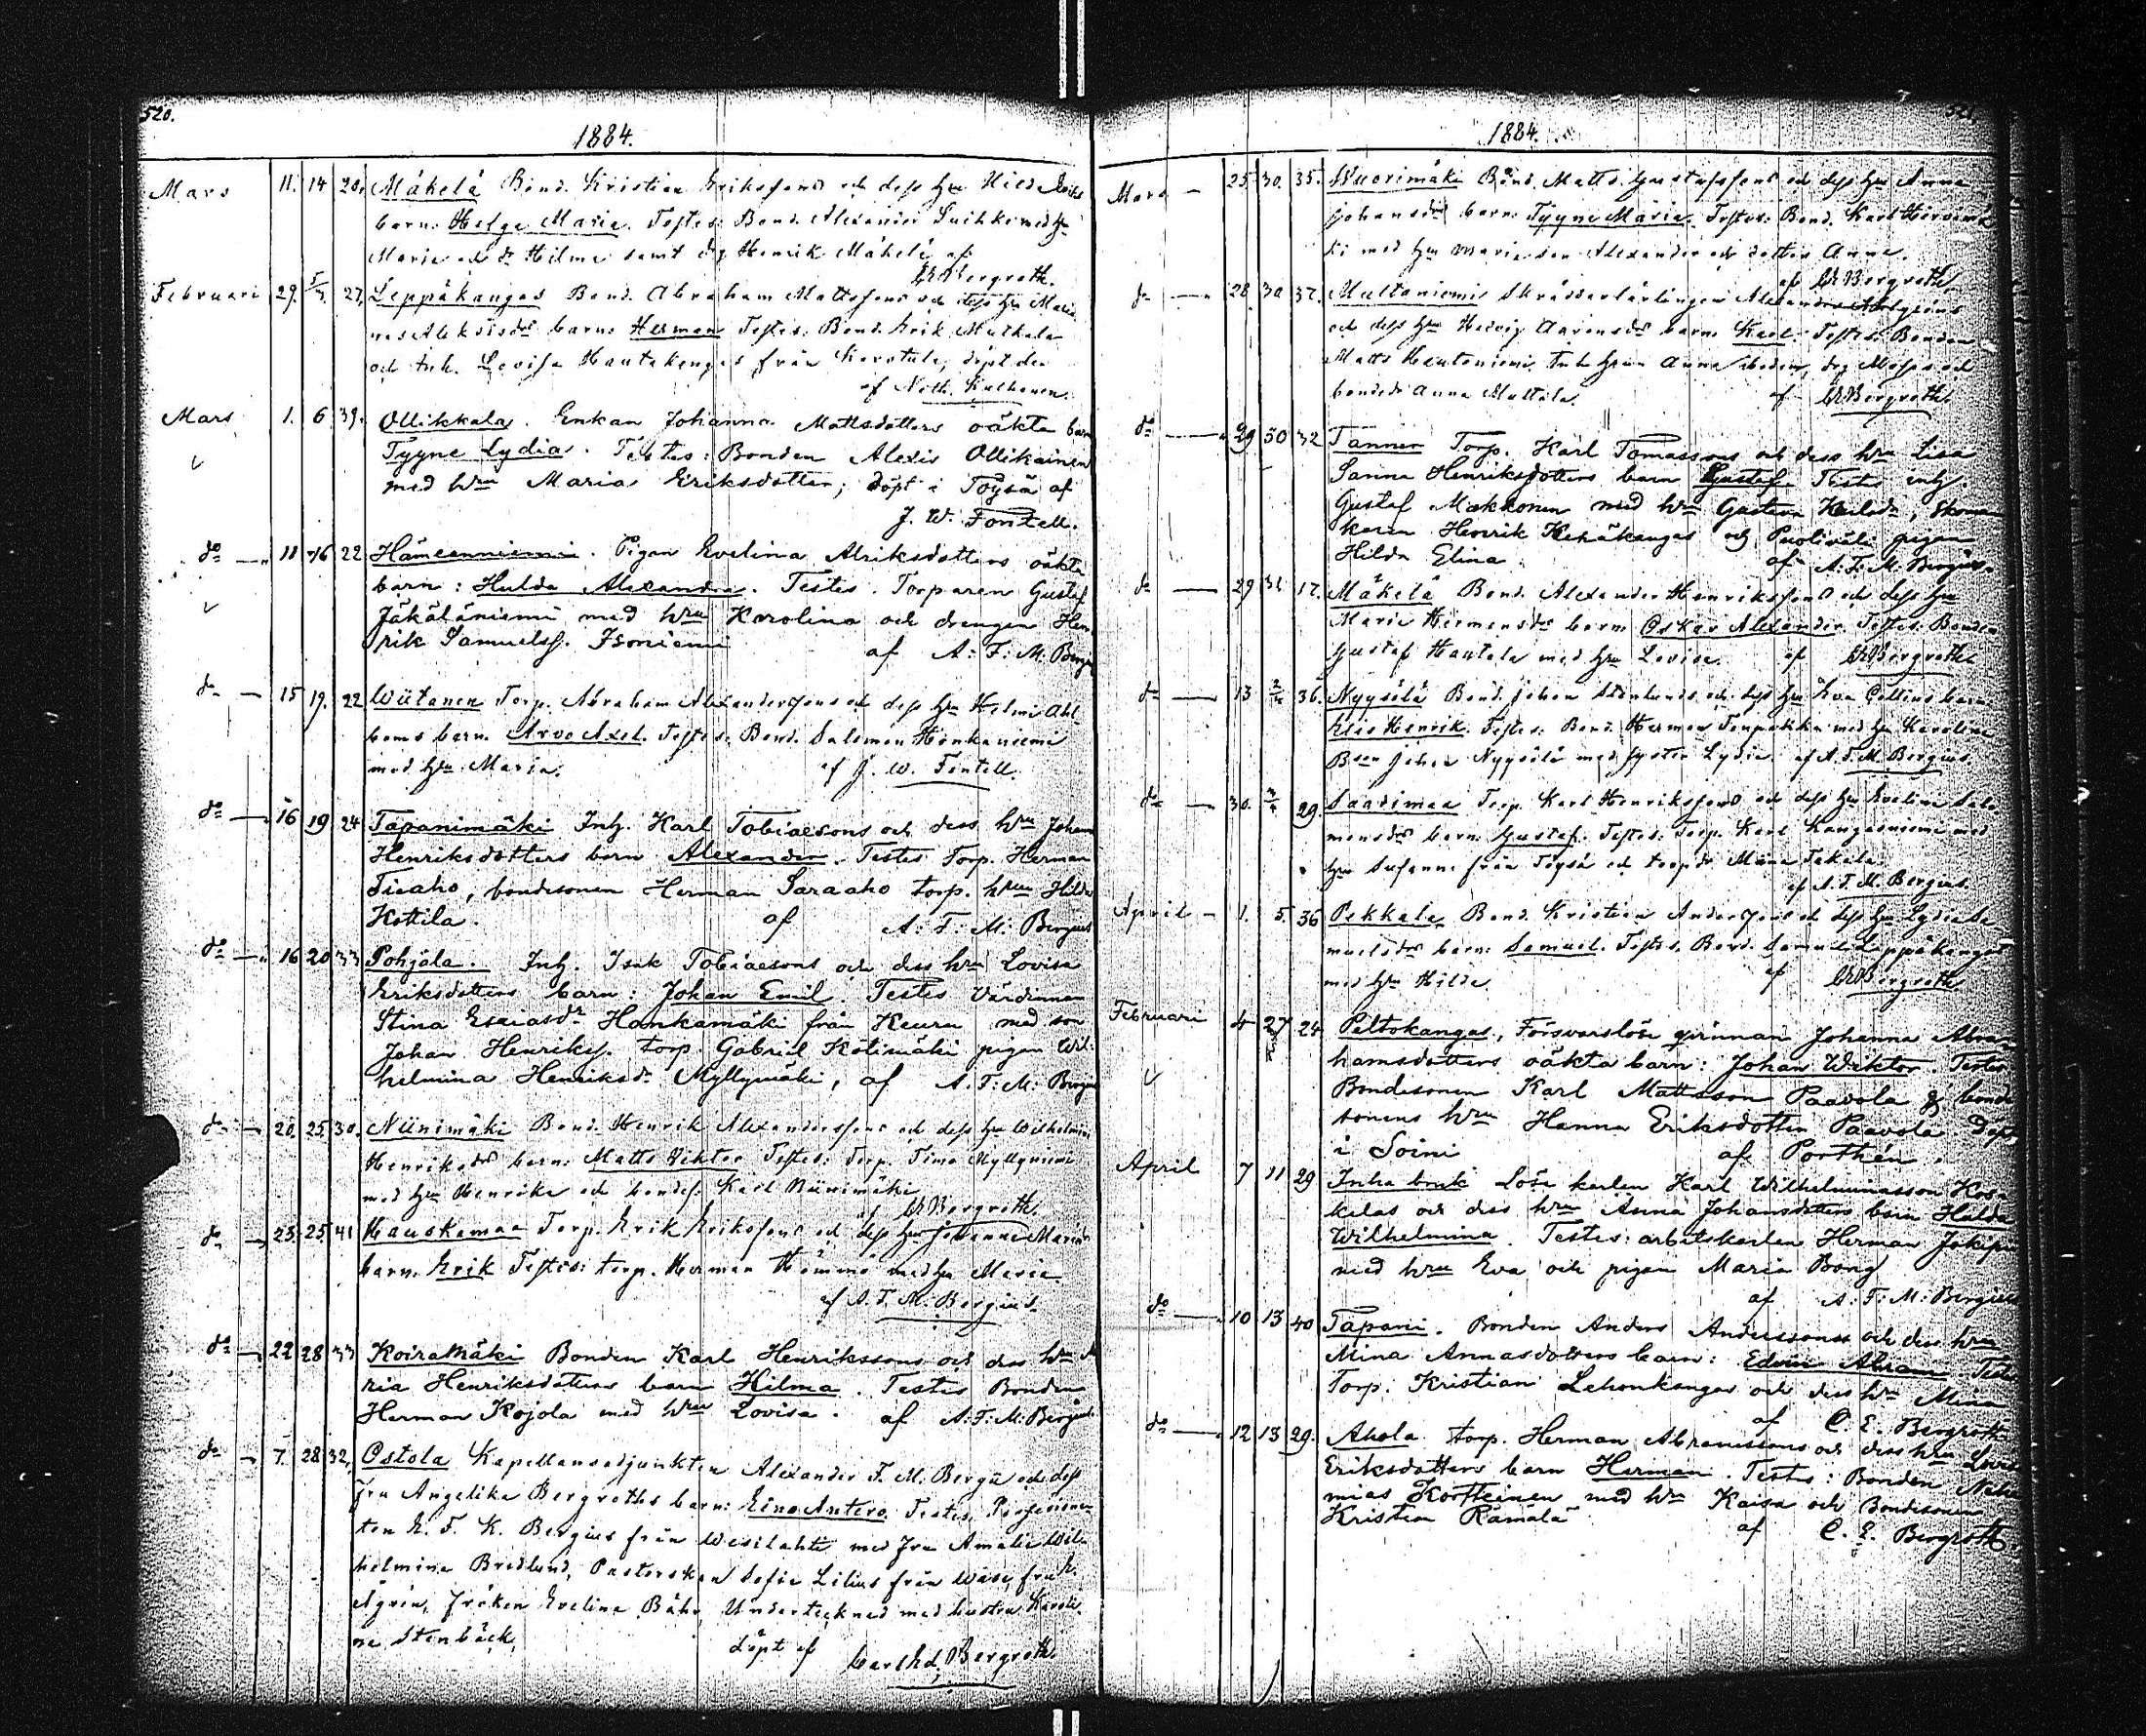 520.
1884.
Mars 11. 14 20. Mäkelä Bond. Kristian Erikssons och dess hu Hilda Eriks
barn: Helga Maria. Testes: Bond. Alexander med hu
Maria och dr Hilma samt drg Henrik Mäkelä af
Bergroth.
Februari 29. 5/3. 27, Leppäkangas Bond. Abraham Mattssons och dess hu
barn: Herman Testes: Bond. Erik
och Inh. Lovisa Hautakangas från döpt der
af Kalhonen.
Mars 1. 6 39. Ollikkala. Enkan Johanna Mattsdotters oäkta barn
Tyyne Lydia. Testes: Bonden Alexis Ollikainen
med hru Maria Eriksdotter; döpt i Töysä af
J. W. Fontell.
do 11 16 22 Hämeenniemi. Pigan Evelina Alriksdotters oäkta
barn: Hulda Alexandra. Testes. Torparen Gustaf
Jäkäläniemi med hru Karolina och drengen Hen
rik Samuelss. Isoniemi af A: F: M: Bergius
do 15 19. 22 Wiitanen Torp. Abraham Alexanderssons och dess hu Helmi Ahl
boms barn. Arvo Axel. Testes: Bond. Salomon Honkaniemi
med hu Maria. af J. W. Fontell.
do 16 19 24 Tapanimäki Inh. Karl Tobiaesons och dess hru Johan
Henriksdotters barn Alexander. Testes Torp. Herman
Tieaho, bondesonen Herman Saraaho torp. hru Hilda
Kottila. af A: F: M: Bergius
do 16 20 33 Pohjola. Inh. Isak Tobiaesons och dess hru Lovisa
Eriksdotters barn: Johan Emil. Testes Värdinnan
Stina Esaiasdr Honkamäki från Keuru med son
Johan Henrikss. torp. Gabriel Kotimäki pigan Wil:
helmina Henriksdr Myllymäki, af A. F: M: Bergius
do 20. 25. 30. Niinimäki Bond. Henrik Alexanderssons och dess hu Wilhelmina
Henriksdrs barn: Matts Viktor Testes: Torp. Timo Myllyniemi
med hu Henrika och bondes. Karl Niinimäki
af Bergroth.
do 23. 25 41 Hauskamaa Torp. Erik Erikssons och dess hu Johanna Maria
barn. Erik Testes: torp. Herman Hömmö med hu Maria
af A. F. M. Bergius.
do 22 28 33 Koiramäki Bonden Karl Henrikssons och dess hru Ma
ria Henriksdotters barn Hilma. Testes Bonden
Herman Kojola med hru Lovisa. af A: F: M: Bergius
do 7. 28 32, Ostola Kapellansadjunkten Alexander F. M. Bergii och dess
fru Angelika Bergroths barn: Eino Antero. Testes,
ten E. F. K. Bergius från Wesilahti med fru Amalie Wil-
helmina Bredlund, Pastorskan Sofie Lilius från
Fröken Evelina Bähr, Undertecknad med hustru Karoli
na Stenbäck, döpt af Bergroth.
1884.
Mars 25 30. 35. Wuorimäki Bond. Matts Gustafssons och dess hu Anna
Johansdrs barn: Tyyne Maria. Testes: Bond. Karl
ki med hu Maria son Alexander och dotter Anna.
af Bergroth
do 28. 30 37. Multaniemi Skräddarlärlingen Alexanders
och dess hu Hedvig Aaronsdrs barn Karl. Testes: Bonden
Matts Hautoniemi, Inh hrun Anna drg och
bondedr Anna Mattila. af Bergroth
do 29 30 32 Tanner Torp. Karl Tomassons och dess hru Lisa
Sanna Henriksdotters barn Gustaf. Testes inh.
Gustaf Makkonen med hru Gustava Karlsdr, skoma
karen Henrik Kesäkangas och Puoliväli pigan
Hilda Elina. af A: F. M. Bergius.
do 29 31 17. Mäkelä Bond. Alexander Henrikssons och dess hu
Maria Hermansdrs barn Oskar Alexander. Testes: Bonden
Gustaf Hautala med hu Lovisa. af Bergroth
do 13 2/4 36. Nyysölä Bond. Johan och dess hu Eva barn:
Henrik. Testes: Bond. Herman med hu Karolina
Johan Nyysölä med syster Lydia af A. F. M. Bergius.
do 30. 3/4 29. Saarimaa Torp. Karl Henrikssons och dess hu Evelina Salo
monsdrs barn: Gustaf. Testes: Torp. Karl Kangasniemi med
hu Susanna från Töysä och torpdr Takala.
af A. F. M. Bergius.
April 1. 5. 36 Pekkala Bond. Kristian Anderssons och dess hu Lydia Sa
muelsdrs barn: Samuel. Testes. Bond. Samuel Leppäkangas
med hu Hilda. af Bergroth
Februari 4 27 24 Peltokangas, Försvarslösa qvinnan Johanna Abra
hamsdotters oäkta barn: Johan Wiktor. Testes
Bondesonen Karl Mattsson Paavola & bonde
sonens hru Hanna Eriksdotter Paavola. Döpt
i Soini af Porthén.
April 7 11 29 Inha bruk Löse karlen Karl Wilhelminasson Kos
kelas och dess hru Anna Johansdotters barn Hulda
Wilhelmina. Testes: arbetskarlen Herman Jokipii
med hru Eva och pigan Maria Bong
af A: F: M: Bergius
do 10 13 40 Tapani. Bonden Anders Anderssons och dess hru
Mina Annasdotters barn: Edvin Abram Testes
Torp. Kristian Lehonkangas och dess hru Mina
af C. E. Bergroth
do 12 13 29. Ahola torp. Herman Abramssons och dess hru Lovisa
Eriksdotters barn Herman. Testes: Bonden Nehe
mias Kortteinen med hru Kaisa och Bondesonen
Kristian Rämälä af C. E. Bergroth